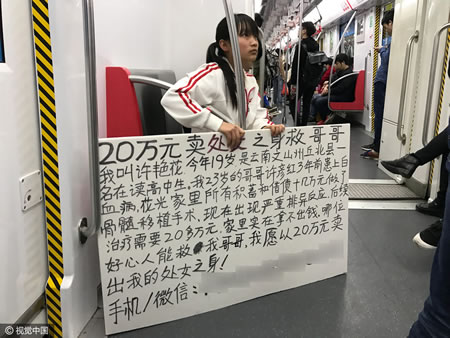 20万元卖处 之身救哥哥
我叫许艳花,今年19岁是云南文山州丘北县一
名在读高中生,我23岁的哥哥许彦红3年前患上白
血病,花光家里所有积蓄和借债十几万元做了
骨髓移植手术,现在出现严重排异反应,后续
治疗需要20多万元,家里实在拿不出钱。哪位
好心人能救我哥哥,我愿以20万元卖
出我的处女之身!
手机/微信:
视觉中国